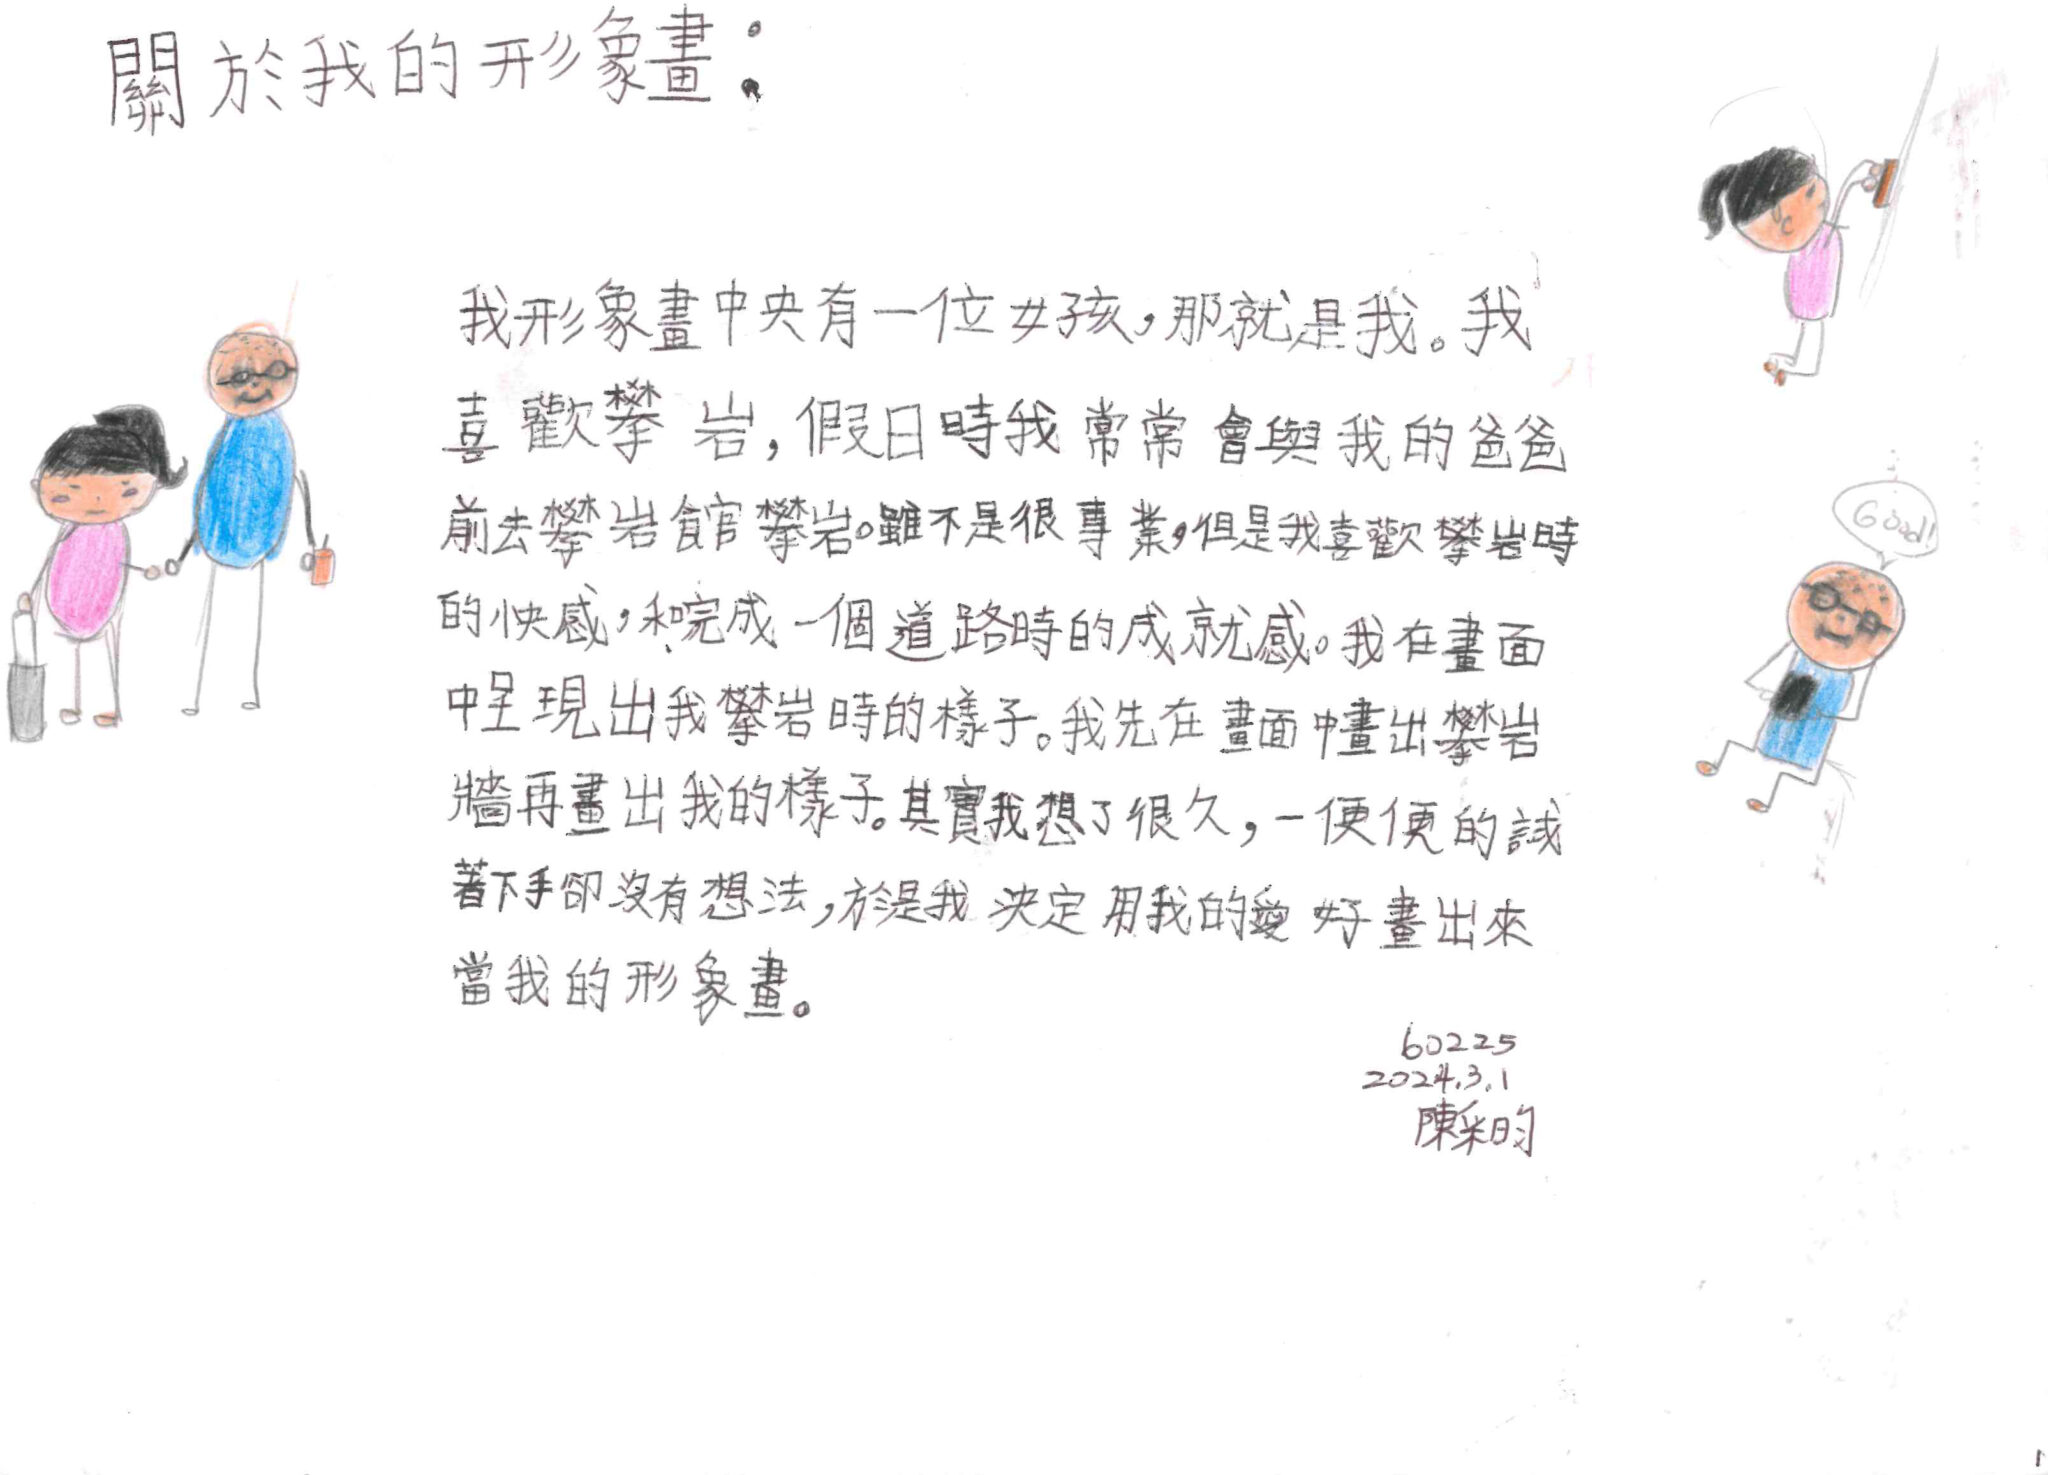 關於我的形象畫：
我形象畫中央有一位女孩，那就是我。我
喜歡攀岩，假日時我常常會與我的爸爸
前去攀岩館攀岩。雖不是很專業，但是我喜歡攀岩時
的快感，和完成一個道路時的成就感。我在畫面
中呈現出我攀岩時的樣子。我先在畫面中畫出攀岩
牆再畫出我的樣子。其實我想了很久，一便便的試
著下手卻沒有想法，於是我決定用我的愛好畫出來
當我的形象畫。
60225
2024.3.1
陳采昀
Good!